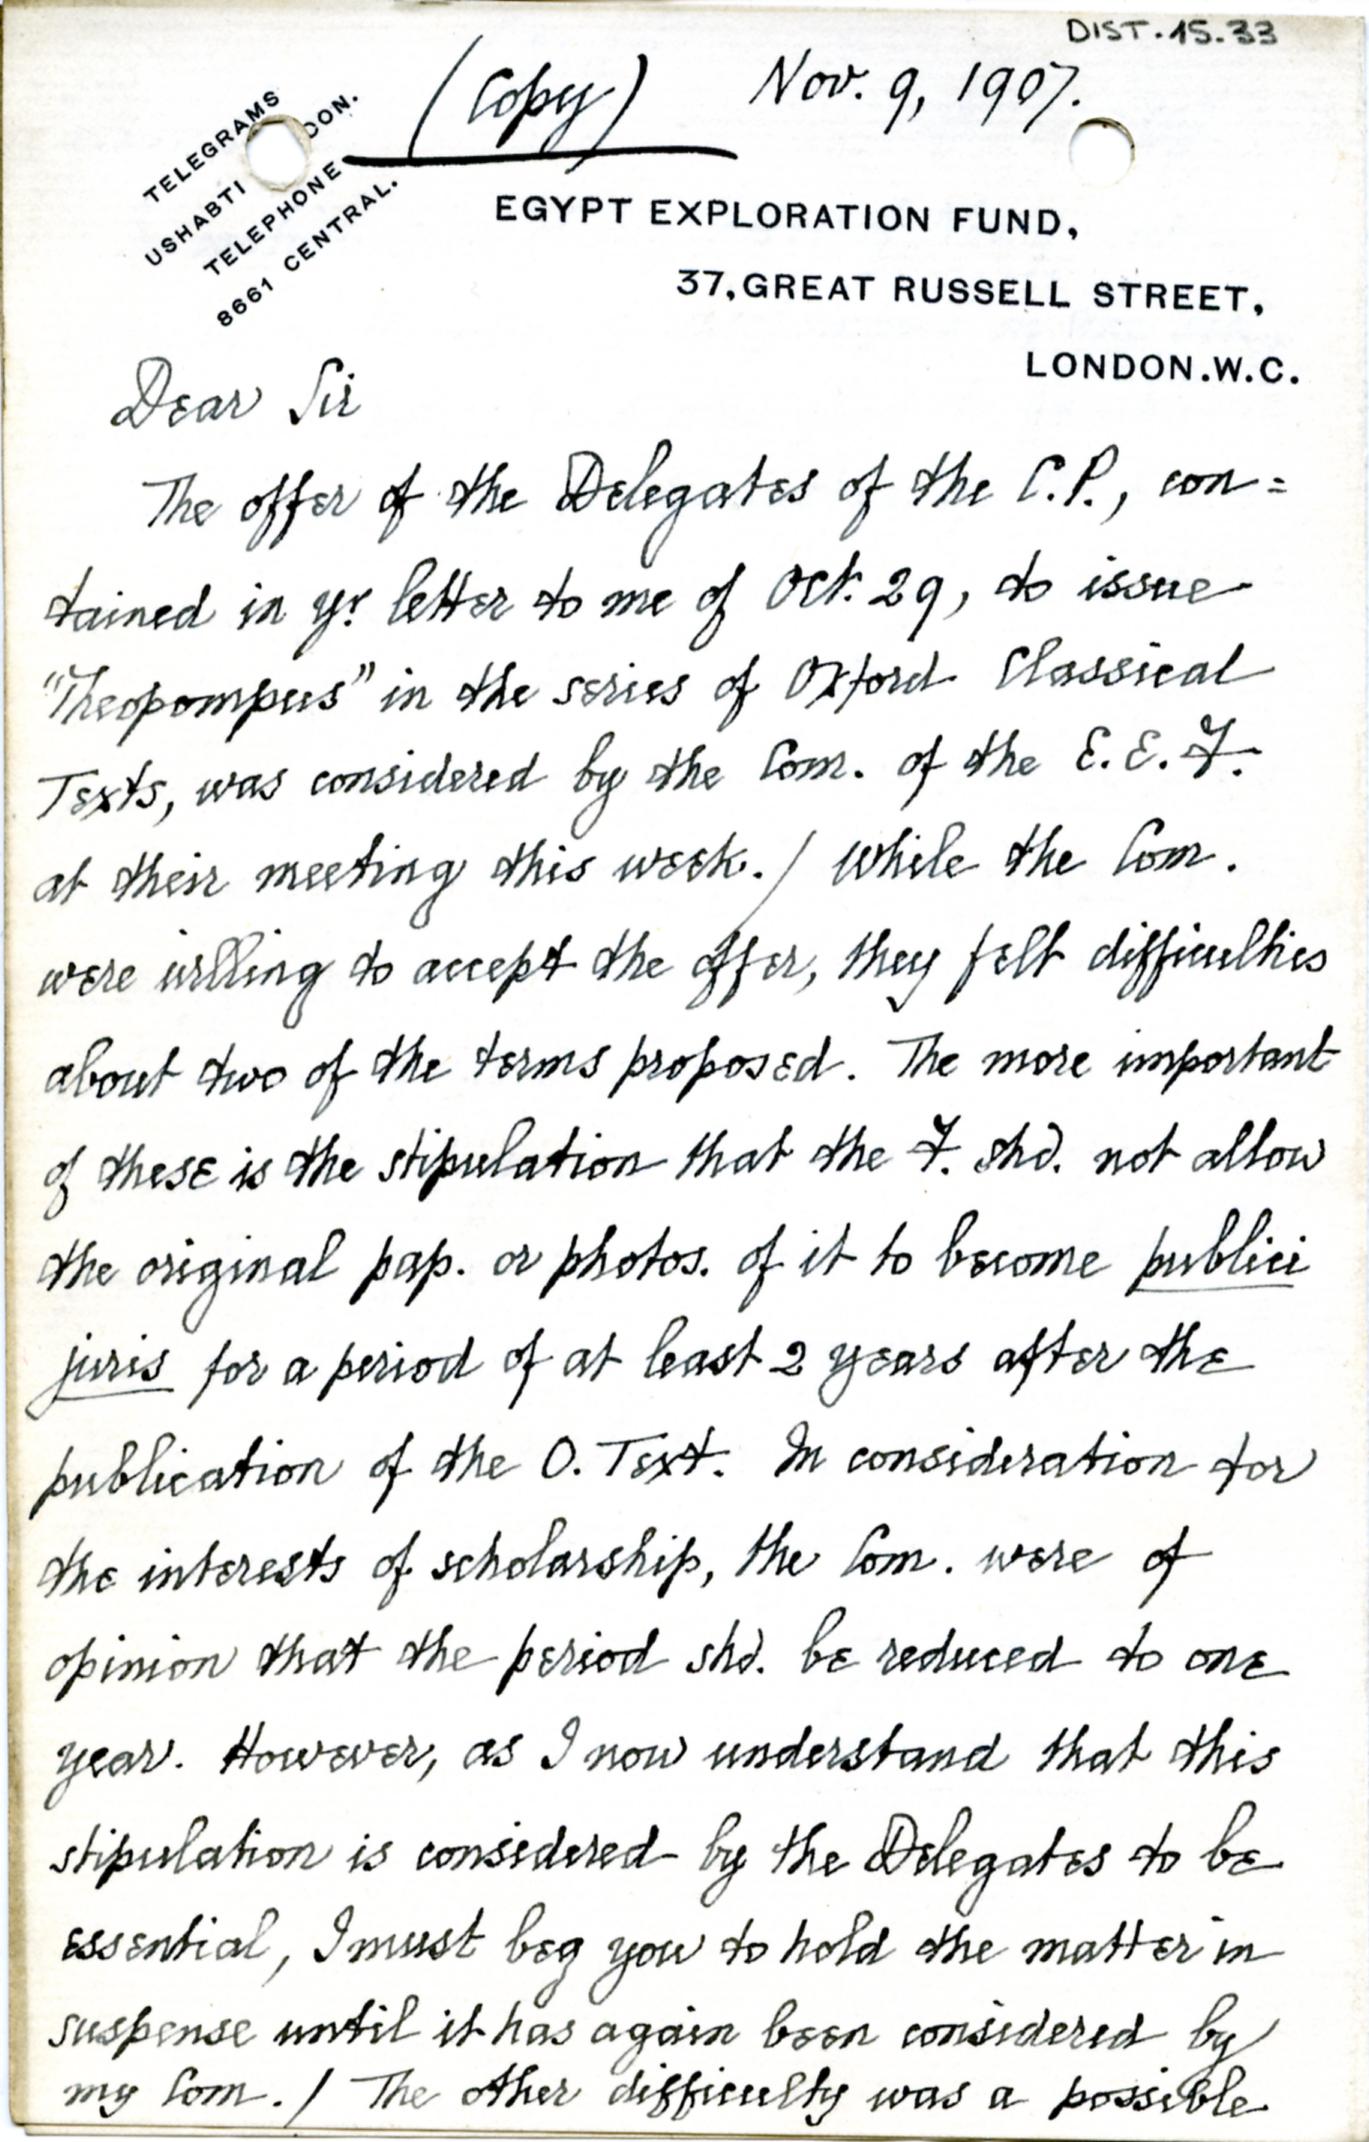 DIST. 15.33
(Copy) Nov. 9, 1907.
TELEGRAMS
USHABTI CON.
TELEPHONE
8661 CENTRAL.
EGYPT EXPLORATION FUND,
37, GREAT RUSSELL STREET,
LONDON. W.C.
Dear Sir
The offer of the Delegates of the C.P., con=
tained in yr. letter to me of Oct. 29, to issue
"Theopompus" in the series of Oxford Classical
Texts, was considered by the Com. of the E.E.F.
at their meeting this week. / While the Com.
were willing to accept the offer, they felt difficulties
about two of the terms proposed. The more important
of these is the stipulation that the F. shd. not allow
the original pap. or photos. of it to become publici
juris for a period of at least 2 years after the
publication of the O. Text. In consideration for
the interests of scholarship, the Com. were of
opinion that the period shd. be reduced to one
year. However, as I now understand that this
stipulation is considered by the Delegates to be
essential, I must beg you to hold the matter in
suspense until it has again been considered by
my Com. / The other difficulty was a possible